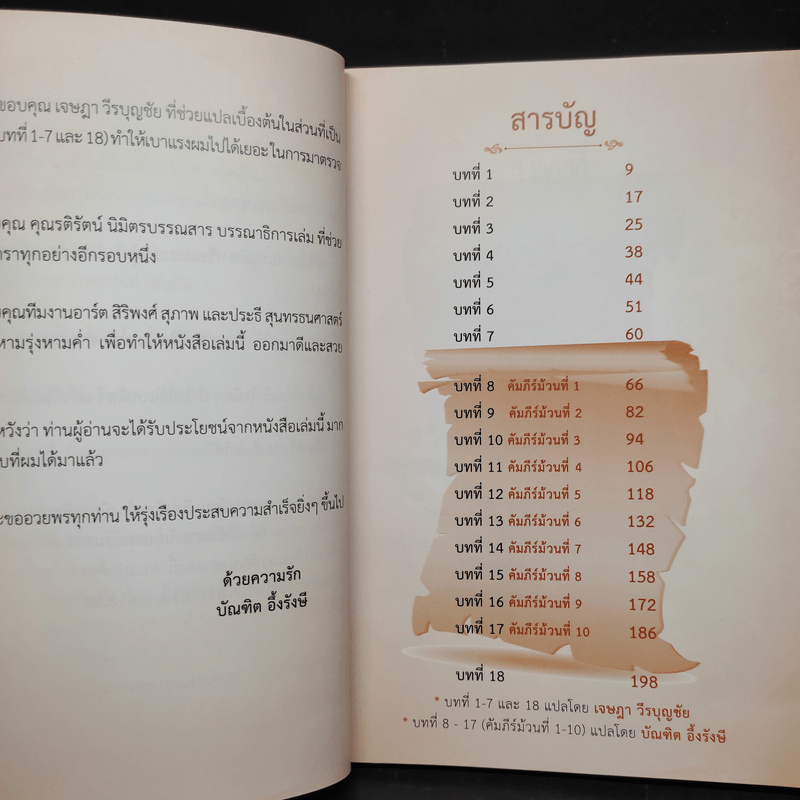 ขอบคุณ เจษฎา วีรบุญชัย ที่ช่วยแปลเบื้องต้นในส่วนที่เป็น
บทที่ 1-7 และ 18) ทำให้เบาแรงผมไปได้เยอะ ในการมาตรวจ
คุณ คุณรติรัตน์ นิมิตรบรรณสาร บรรณาธิการเล่ม ที่ช่วย
ราทุกอย่างอีกรอบหนึ่ง
คุณทีมงานอาร์ต สิริพงศ์ สุภาพ และประธี สุนทรธนศาสตร์
หามรุ่งหามค่ำ เพื่อทำให้หนังสือเล่มนี้ ออกมาดีและสวย
หวังว่า ท่านผู้อ่านจะได้รับประโยชน์จากหนังสือเล่มนี้ มาก
บที่ผมได้มาแล้ว
ะขออวยพรทุกท่าน ให้รุ่งเรืองประสบความสำเร็จยิ่งๆ ขึ้นไป
ด้วยความรัก
บัณฑิต อึ้งรังษี
สารบัญ
บทที่ 1 9
บทที่ 2 17
บทที่ 3 25
บทที่ 4 38
บทที่ 5 44
บทที่ 6 51
บทที่ 7 60
บทที่ 8 คัมภีร์ม้วนที่ 1 66
บทที่ 9 คัมภีร์ม้วนที่ 2 82
บทที่ 10 คัมภีร์ม้วนที่ 3 94
บทที่ 11 คัมภีร์ม้วนที่ 4 106
บทที่ 12 คัมภีร์ม้วนที่ 5 118
บทที่ 13 คัมภีร์ม้วนที่ 6 132
บทที่ 14 คัมภีร์ม้วนที่ 7 148
บทที่ 15 คัมภีร์ม้วนที่ 8 158
บทที่ 16 คัมภีร์ม้วนที่ 9 172
บทที่ 17 คัมภีร์ม้วนที่ 10 186
บทที่ 18 198
* บทที่ 1-7 และ 18 แปลโดย เจษฎา วีรบุญชัย
* บทที่ 8 - 17 (คัมภีร์ม้วนที่ 1-10) แปลโดย บัณฑิต อึ้งรังษี